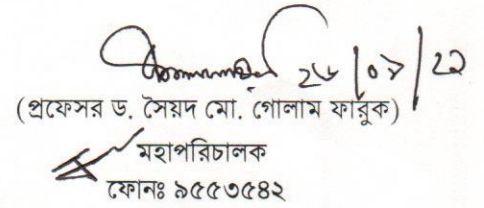 ২৬/০৯/২১
(প্রফেসর ড. সৈয়দ মো. গোলাম ফারুক)
মহাপরিচালক
ফোনঃ ৯৫৫৩৫৪২